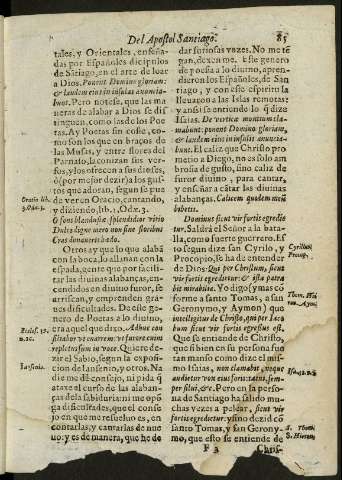 Del Apostol Santiago. 85
tales, y Orientales, enseña-
das por Españoles dicipulos
de Sãtiago, en el arte de loar
à Dios. Ponent Domino gloriam:
& laudem eius in insulis anuncia-
bunt. Pero notese, que las ma
neras de alabar a Dios se dis
tinguen, como las de los Poe
tas. Ay Poetas sin cosie, co-
mo son los que en braços de
las Musas, y entre flores del
Parnaso, la conizan sus ver-
sos, y los ofrecen a sus dioses,
ô (por mejor dezir) a los gus-
tos que adoran, segun se pue
de ver en Oracio, cantando,
y diziendo, lib. 3. Odæ. 3.
O fons blandusiæ, splendidior vitro
Dulce digne mero non sine floribus
Cras donaueris hædo.
Otros ay que lo que alabã
con la boca, lo allanan con la
espada, gente que por facili-
tar las diuinas alabanças, en-
cendidos en diuino furor, se
arriscan, y emprenden gran-
des dificultades. Deste gé-
nero de Poetas a lo diuino,
era aquel que dixo. Adhuc con
siliabor ve enarrem: vt furore enim
repletus sum in voce. Quiere de-
zir el Sabio, segun la exposi-
cion de Iansenio, y otros. Na
die me dè consejo, ni pida q̃
ataxe el curso de las alaban-
ças de la sabiduria: ni me opõ
ga dificultades, que el conse
jo en que me resuelvo es, en
contarlas, y cantarlas de nue
uo: y es de manera, que he de
dar furiosas vozes. No me tẽ
gan, dexenme. Este genero
de poesia a lo diuino, apren-
dieron los Españoles, de San
tiago, y con ese espiritu la
lleuaron a las Islas remotas:
y a ansi entiendo lo q̃ dize
Isaias. De vertice montium clama-
mabunt: ponent Domino gloriam,
& laudem eius in insulis anuncia-
bunt. El caliz que Christo pro
metio a Diego, no es solo am
brosia de gusto, sino caliz de
furor diuino, para cantar,
y enseñar a cãtar las diuinas
alabanças. Calicem quodem meũ
bibetis.
Dominus sicut vir fortis egredie
tur. Saldrà el Señor a la bata-
lla, como fuerte guerrero. Es
to segun dize san Cyrilo, y
Procopio, se ha de entender
de Dios: Qui per Christum, sicut
vir fortis egredietur: & ista patra
bit mirabilia. Yo digo (y mas cõ
forme a santo Tomas, a san
Geronymo, y Aymon) que
intelligitur de Christo, qui per Iaco
bum sicut vir fortis egressus est.
Que se entiende de Christo,
que si bien en su persona fue
tan manso como dize el mis-
mo Isaias, non clamabit, neque
audietur vox eius foris: tamẽ, sem
per silui, &c. Pero en la perso-
na de Santiago ha salido mu-
chas vezes a pelear, sicut vir
fortis egredietur, y sino dezid cõ
santo Tomas, y san Gerony-
mo, que esto se entiende de
F 3 Chris-
Oratio lib.
3. Odæ. 3.
Ecclef. 39.
n. 16.
Iansenio.
Cyrilius,
Procop.
Thom. Hie
ron. Aymõ
Isa. 42. n. 2.
S. Thom.
S. Hieron.